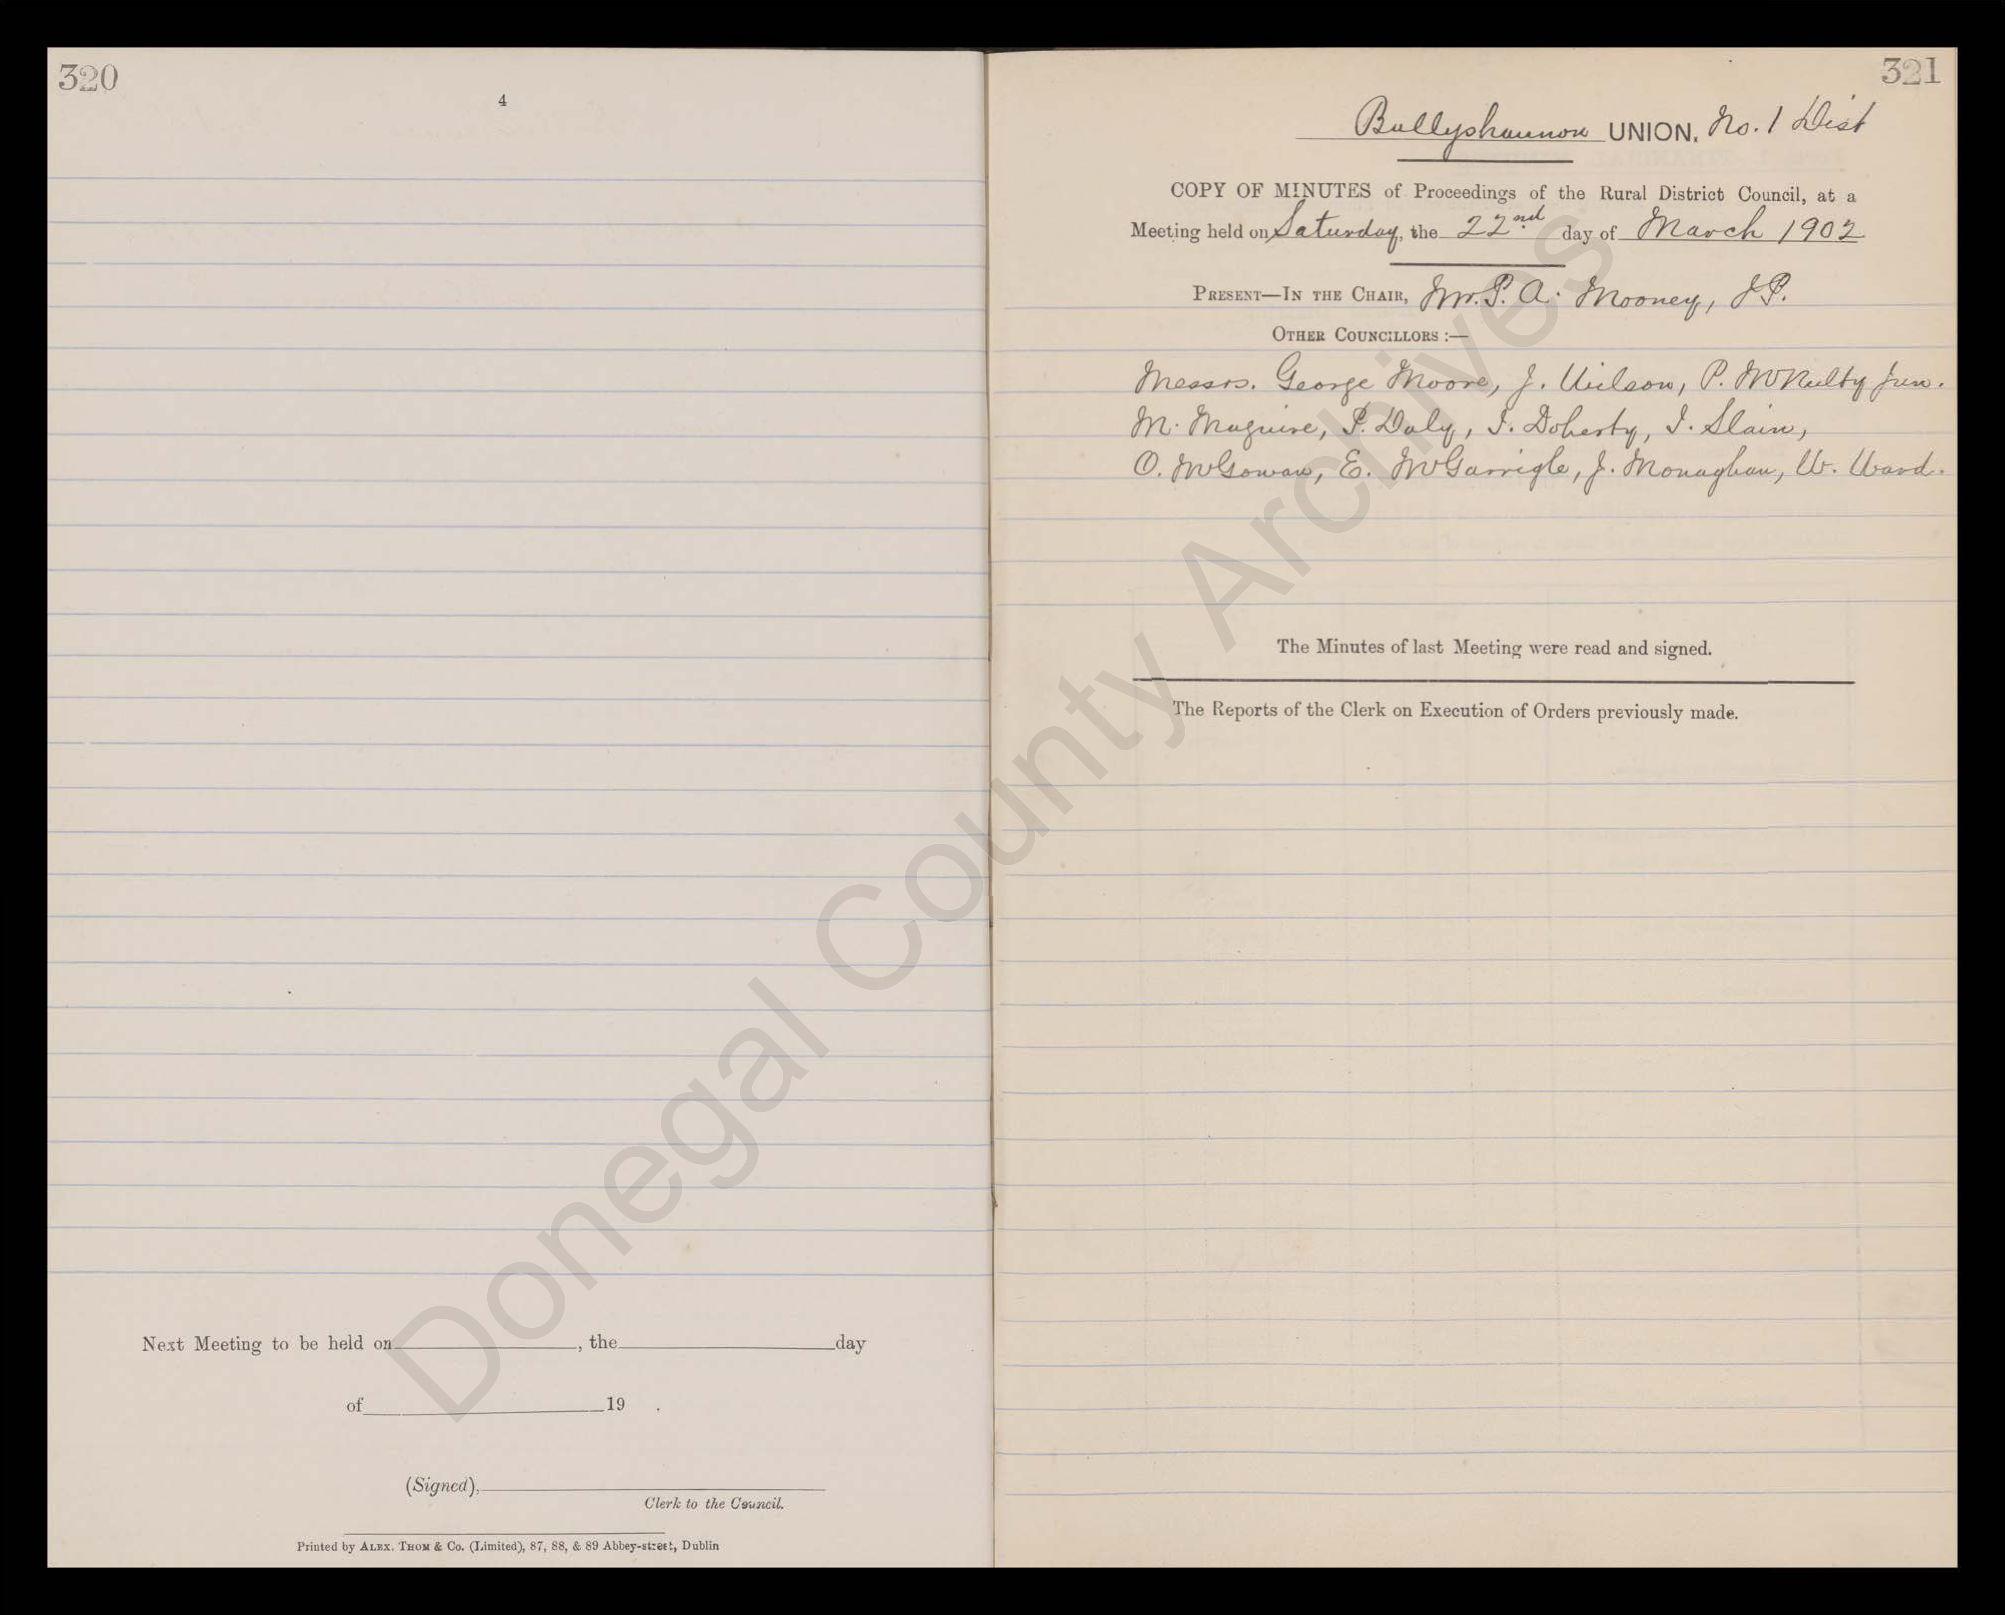 320
4
Next Meeting to be held on , the day
of 19 .
(Signed),
Clerk to the Council.
Printed by ALEX. THOM & Co. (Limited), 87, 88, & 89 Abbey-street, Dublin
321
Ballyshannon UNION, No. 1 Dist
COPY OF MINUTES of Proceedings of the Rural District Council, at a
Meeting held on Saturday, the 22nd day of March 1902
PRESENT—IN THE CHAIR, Mr. P. A. Mooney, J.P.
OTHER COUNCILLORS :—
Messrs. George Moore, J. Wilson, P. McNulty Jun.
M. Maguire, P. Daly, J. Doherty, J. Slain,
O. McGowan, E. McGarrigle, J. Monaghan, W. Ward.
The Minutes of last Meeting were read and signed.
The Reports of the Clerk on Execution of Orders previously made.
Donegal County Archives